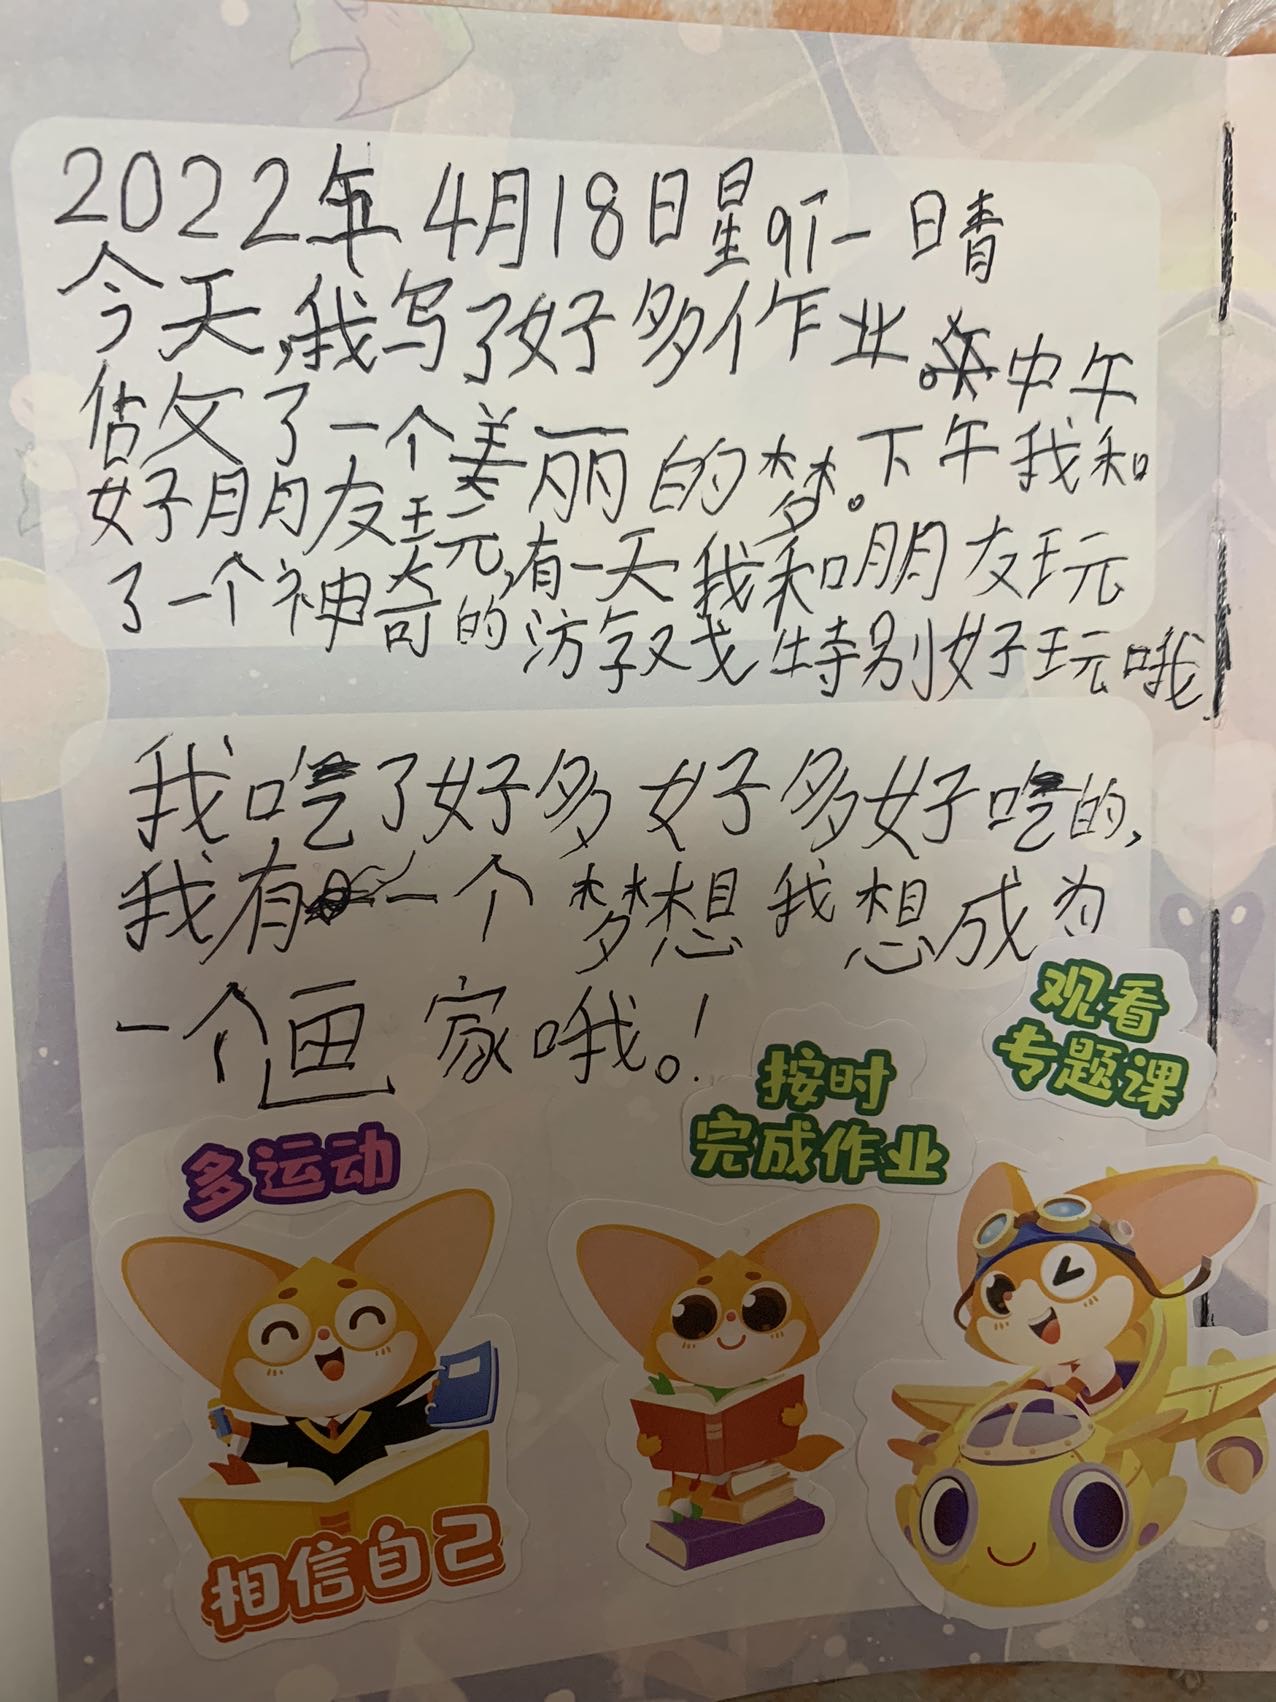 2022年4月18日星期一 晴
今天,我写了好多作业。中午
做了一个美丽的梦。下午我和
好朋友玩,有一天我和朋友玩
了一个神奇的游戏特别好玩哦
我吃了好多好多好吃的,
我有一个梦想我想成为
一个画家哦。!
观看
专题课
按时
完成作业
多运动
相信自己